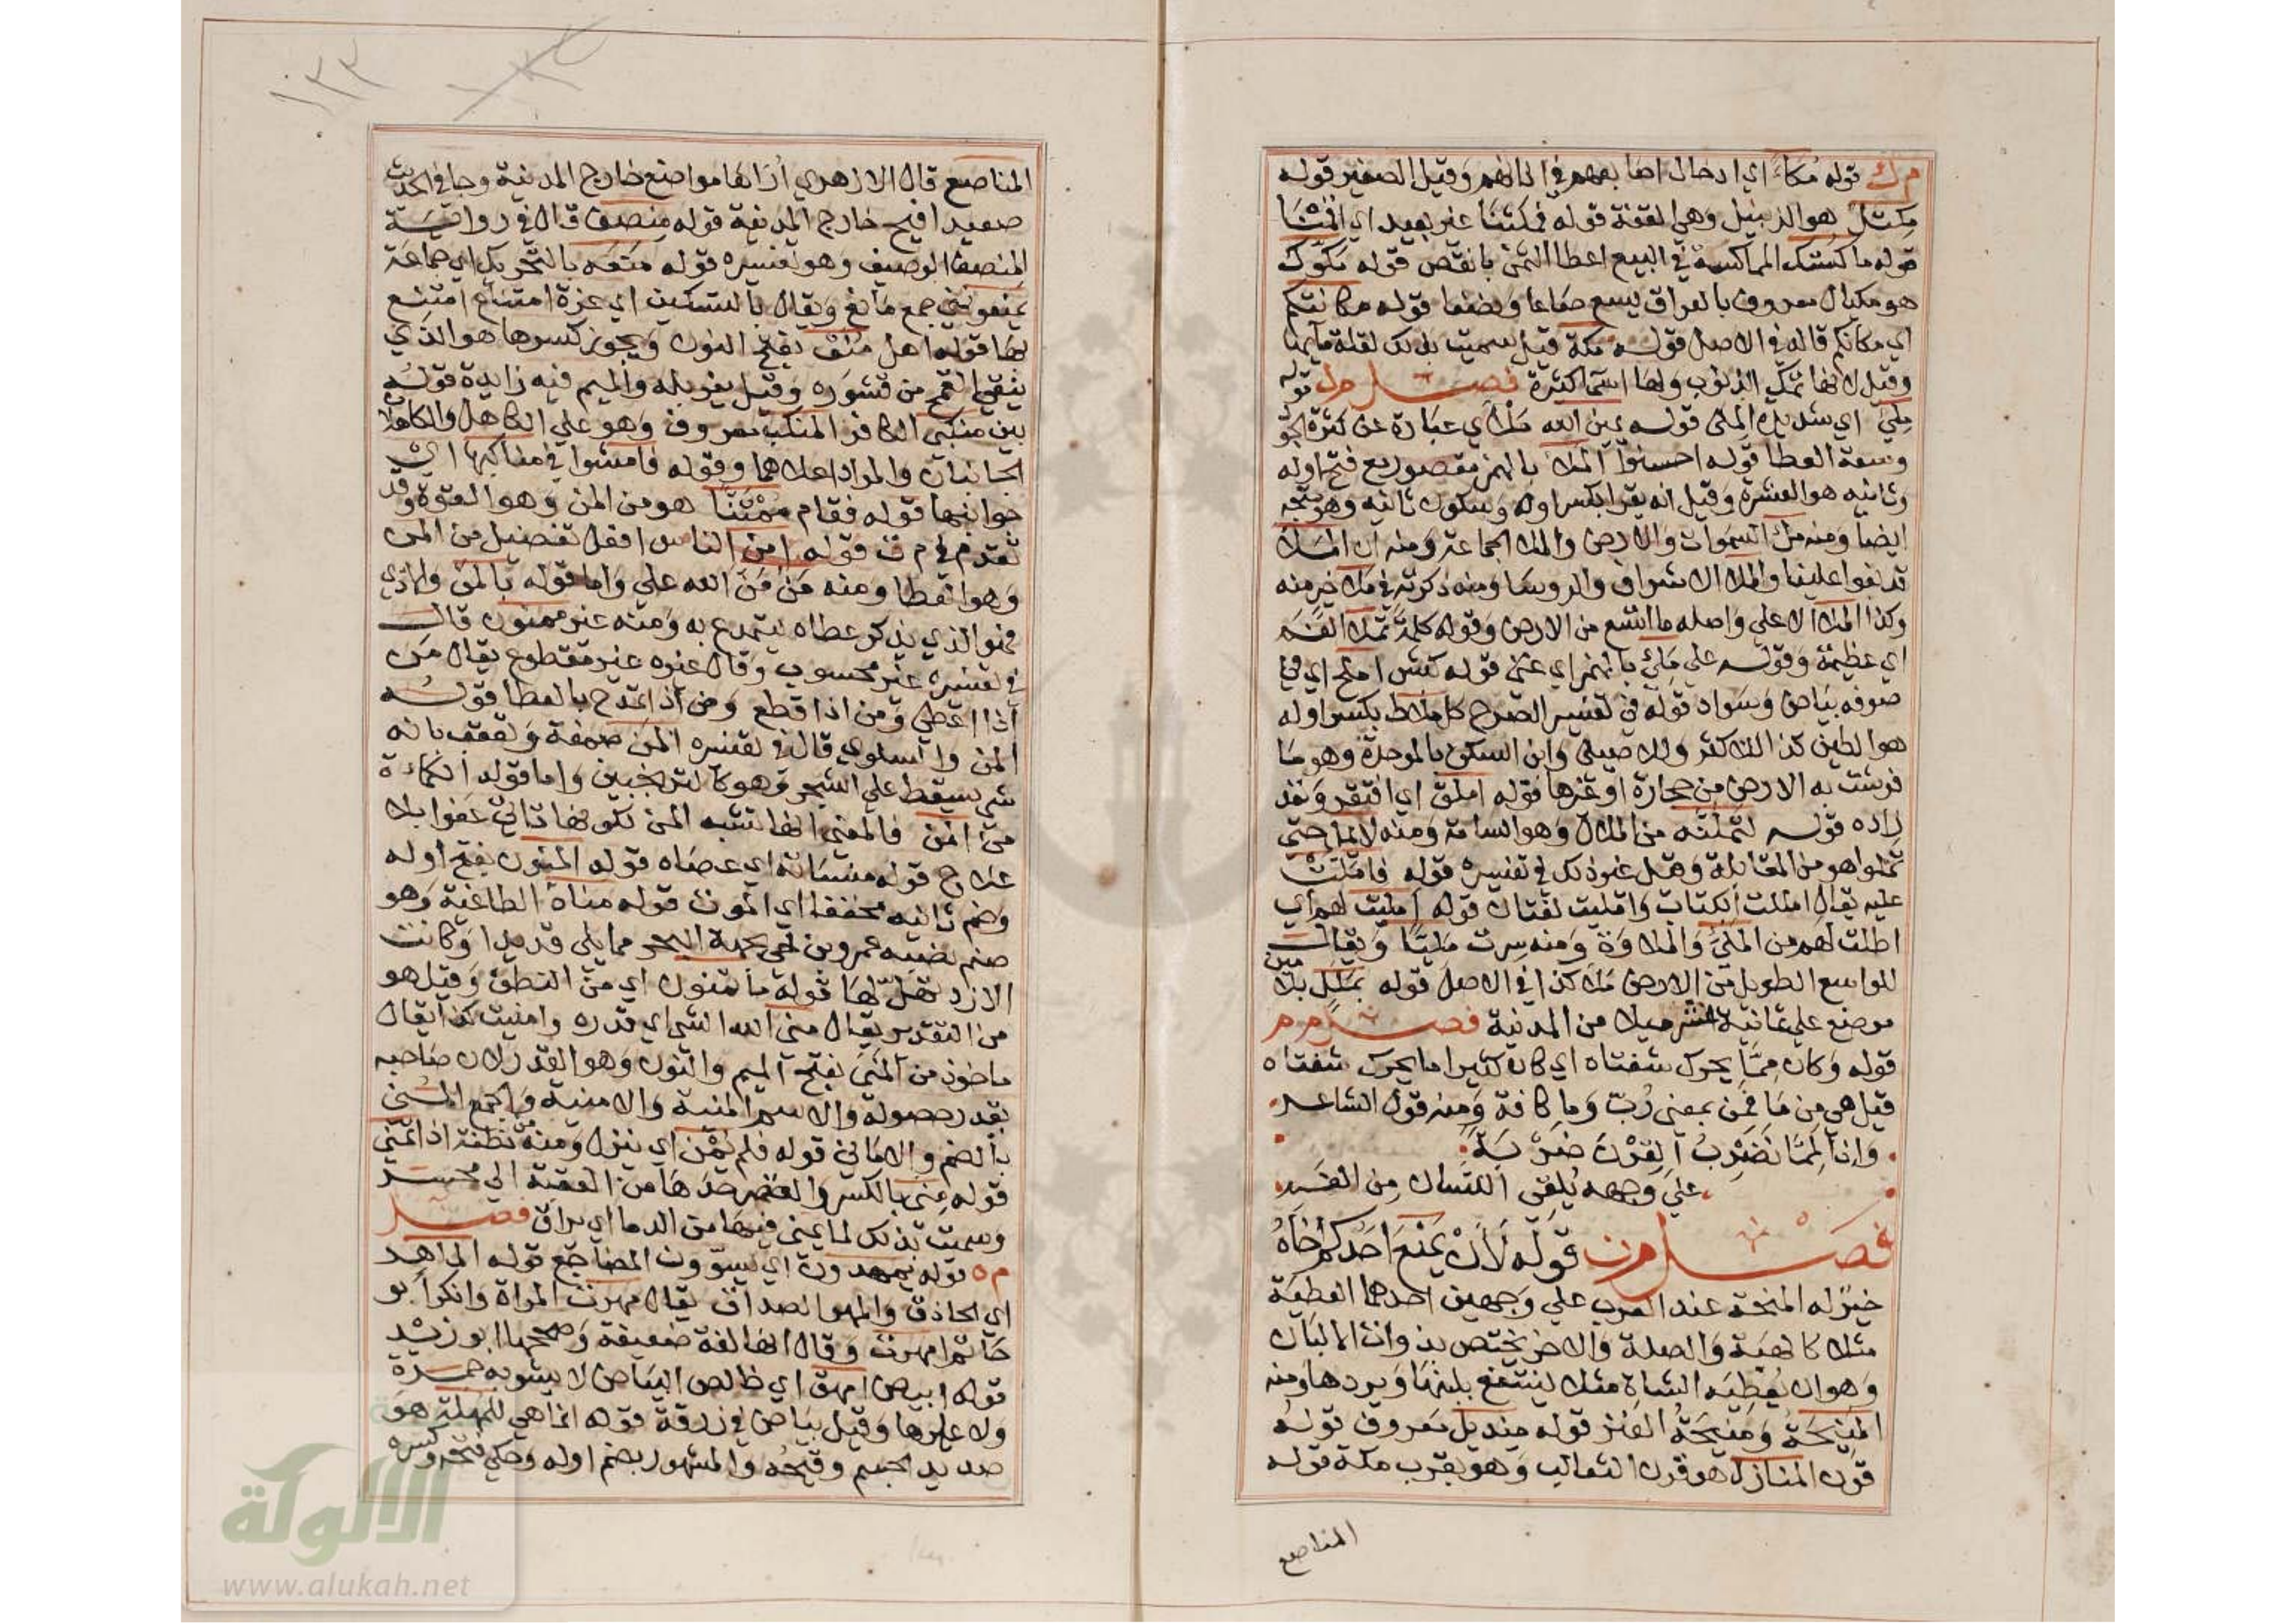 م ك قوله مكاء اي ادخال اصابعهم في اذانهم وقيل الصفير قوله
مكتل هو الزبيل وهي القفة قوله فمكثنا غير بعيد اي اقمنا
قوله ماكستك المماكسة في البيع اعطا الثمن بانقص قوله مكوك
هو مكيال معروف بالعراق يسع صاعا ونصفا قوله مكانتكم
اي مكانكم قاله في الاصل قوله مكة قيل سميت بذلك لقلة مايها
وقيل لانها تمك الذنوب ولها اسما كثيرة فصل م ل قوله
ملئ اي شديدة الملئ قوله يمين الله ملأي عبارة عن كثرة الجود
وسعة العطا قوله احسنوا الملأ بالهمز مقصور مع فتح اوله
وثانيه هو العشرة وقيل انه يقرا بكسر اوله وسكون ثانيه وهو متجه
ايضا ومنه ملأ السموات والارض والملأ الجماعة ومنه ان الملأ
قد بغوا علينا والملأ الاشراف والروسا ومنه ذكرته في ملأ خير منه
وكذا الملأ الاعلي واصله ما اتسع من الارض وقوله كلمة تملأ الفم
اي عظيمة وقوله علي ملئ بالهمز اي غني قوله كبش املح اي في
صوفه بياض وسواد قوله في تفسير الصرح كل ملاط بكسر اوله
هو الطين كذا للاكثر وللاصيلي وابن السكن بالموحدة وهو ما
فرشت به الارض من حجارة او غيرها قوله املق اي افتقر ونفد
زاده قوله لتملته من الملال وهو السامة ومنه لا يمل حتي
تملوا هو من المقابلة وقيل غير ذلك في تفسيره قوله فامللت
عليه يقال امللت الكتاب وامليت لغتان قوله امليت لهم اي
اطلت لهم من الملي والملاوة ومنه سرت مليا ويقال
للواسع الطويل من الارض ملا كذا في الاصل قوله بملل بلامين
موضع علي ثمانية عشر ميلا من المدينة فصل م م
قوله وكان مما يحرك شفتاه اي كان كثيرا ما يحرك شفتاه
قيل هي من ما فمن بمعني رب وما كافة ومنه قول الشاعر
وانا لمما نضرب القرن ضربة
علي وجهه يلقي اللسان من الفم
فصل م ن قوله لأن يمنح احدكم اخاه
خير له المنحة عند العرب علي وجهين احدهما العطية
مثلا كالهبة والصلة والاخر يختص بذوات الالبان
وهو ان يعطيه الشاة مثلا لينتفع بلبنها ويردها ومنه
المنيحة ومنيحة العنز قوله منديل معروف قوله
قرن المنازل هو قرن الثعالب وهو بقرب مكة قوله
المناصع
١٣٣
المناصع قال الازهري أراها مواضع خارج المدينة وجا في الحديث
صعيد افيح خارج المدينة قوله منصف قال في رواية
المنصف الوصيف وهو تفسيره قوله منعة بالتحريك اي جماعة
يمنعونني جمع مانع ويقال بالتسكين اي عزة امتناع امتنع
بها قوله اهل منق بفتح النون ويجوز كسرها هو الذي
ينقي القمح من قشوره وقيل يغربله والميم فيه زايدة قوله
بين منكبي الكافر المنكب معروف وهو علي الكاهل والكاهلان
الجانبان والمراد اعلاهما وقوله فامشوا في مناكبها اي
جوانبها قوله فقام ممتنا هو من المن وهو القوة وقد
تقدم في م ت قوله امن الناس افعل تفضيل من المن
وهو العطا ومنه من من الله علي واما قوله بالمن والاذي
فهو الذي يذكر عطاه ليتمدح به ومنه غير ممنون قال
في تفسيره غير محسوب وقال غيره غير مقطوع يقال من
اذا اعطي ومن اذا قطع ومن اذا تمدح بالعطا قوله
المن والسلوي قال في تفسيره المن صمغة وتعقب بانه
شي يسقط علي الشجر وهو كالترنجبين واما قوله الكماة
من المن فالمعني انها تشبه المن لكونها تاتي عفوا بلا
علاج قوله منساته اي عصاه قوله المنون بفتح اوله
وضم ثانيه مخففا اي الموت قوله مناة الطاغية وهو
صنم نصبه عمرو بن لحي بجهة البحر مما يلي قديدا وكانت
الازد تهل لها قوله ما تمنون اي من النطق وقيل هو
من التقدير يقال مني الله الشي اي قدره وامنيت كذا يقال
ماخوذ من المني بفتح الميم والنون وهو القدر لان صاحبه
يقدر حصوله والاسم المنية والامنية والجمع المني
بالضم والاماني قوله فلم يمن اي ينزل ومنه من نطفة اذا تمني
قوله مني بالكسر والقصر حدها من العقبة الي محسر
وسميت بذلك لما يمني فيها من الدما اي يراق فصل
م ه قوله يمهدون اي يسوون المضاجع قوله الماهر
اي الحاذق والمهر الصداق يقال مهرت المراة وانكر ابو
حاتم امهرت وقال انها لغة ضعيفة وصححها ابو زيد
قوله ابيض امهق اي خالص البياض لا يشوبه حمرة
ولا غيرها وقيل بياض في زرقة قوله انما هي للمهلة هو
صديد الجسم وقيحه والمشهور بضم اوله وحكي فتحه وكسره
الألوكة
www.alukah.net